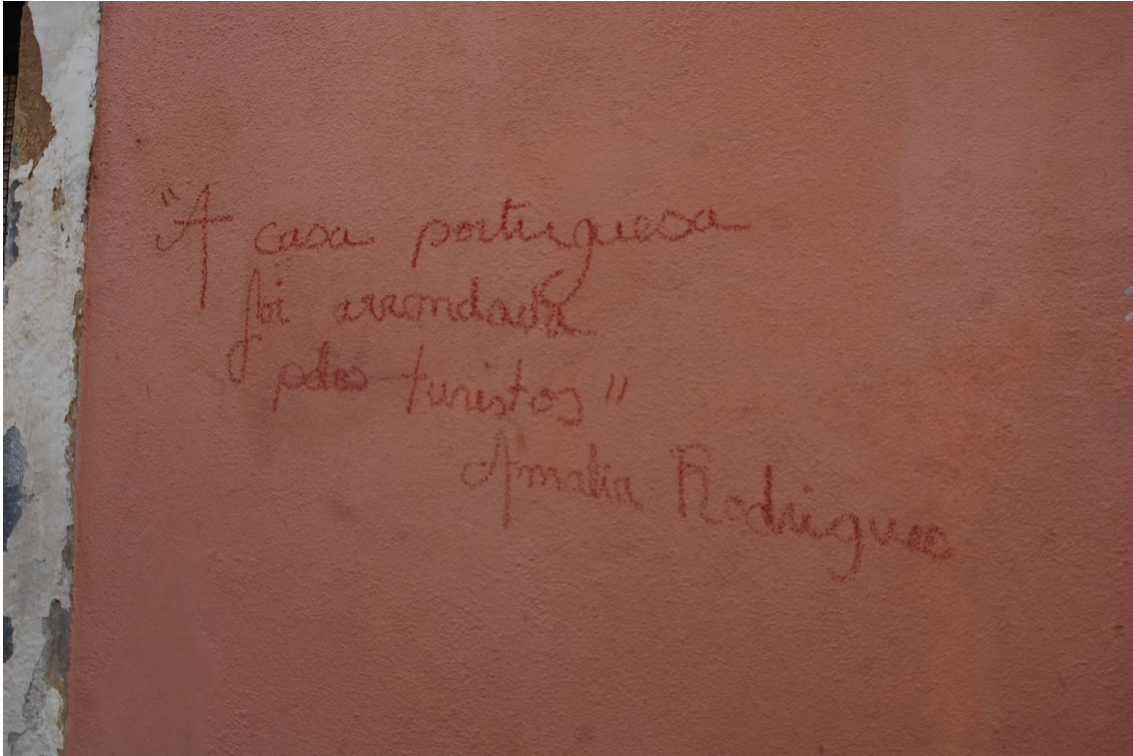 "A casa portuguesa
foi arrendada
pelos turistas"
Amalia Rodrigues